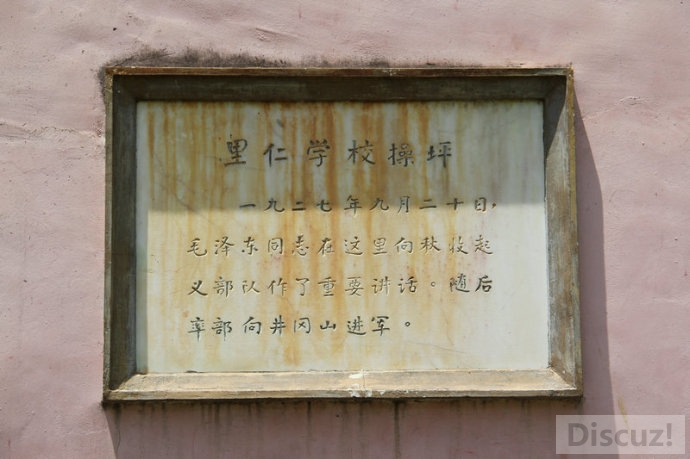 里仁学校操坪
一九二七年九月二十日，
毛泽东同志在这里向秋收起
义部队作了重要讲话。随后
率部向井冈山进军。
Discuz!